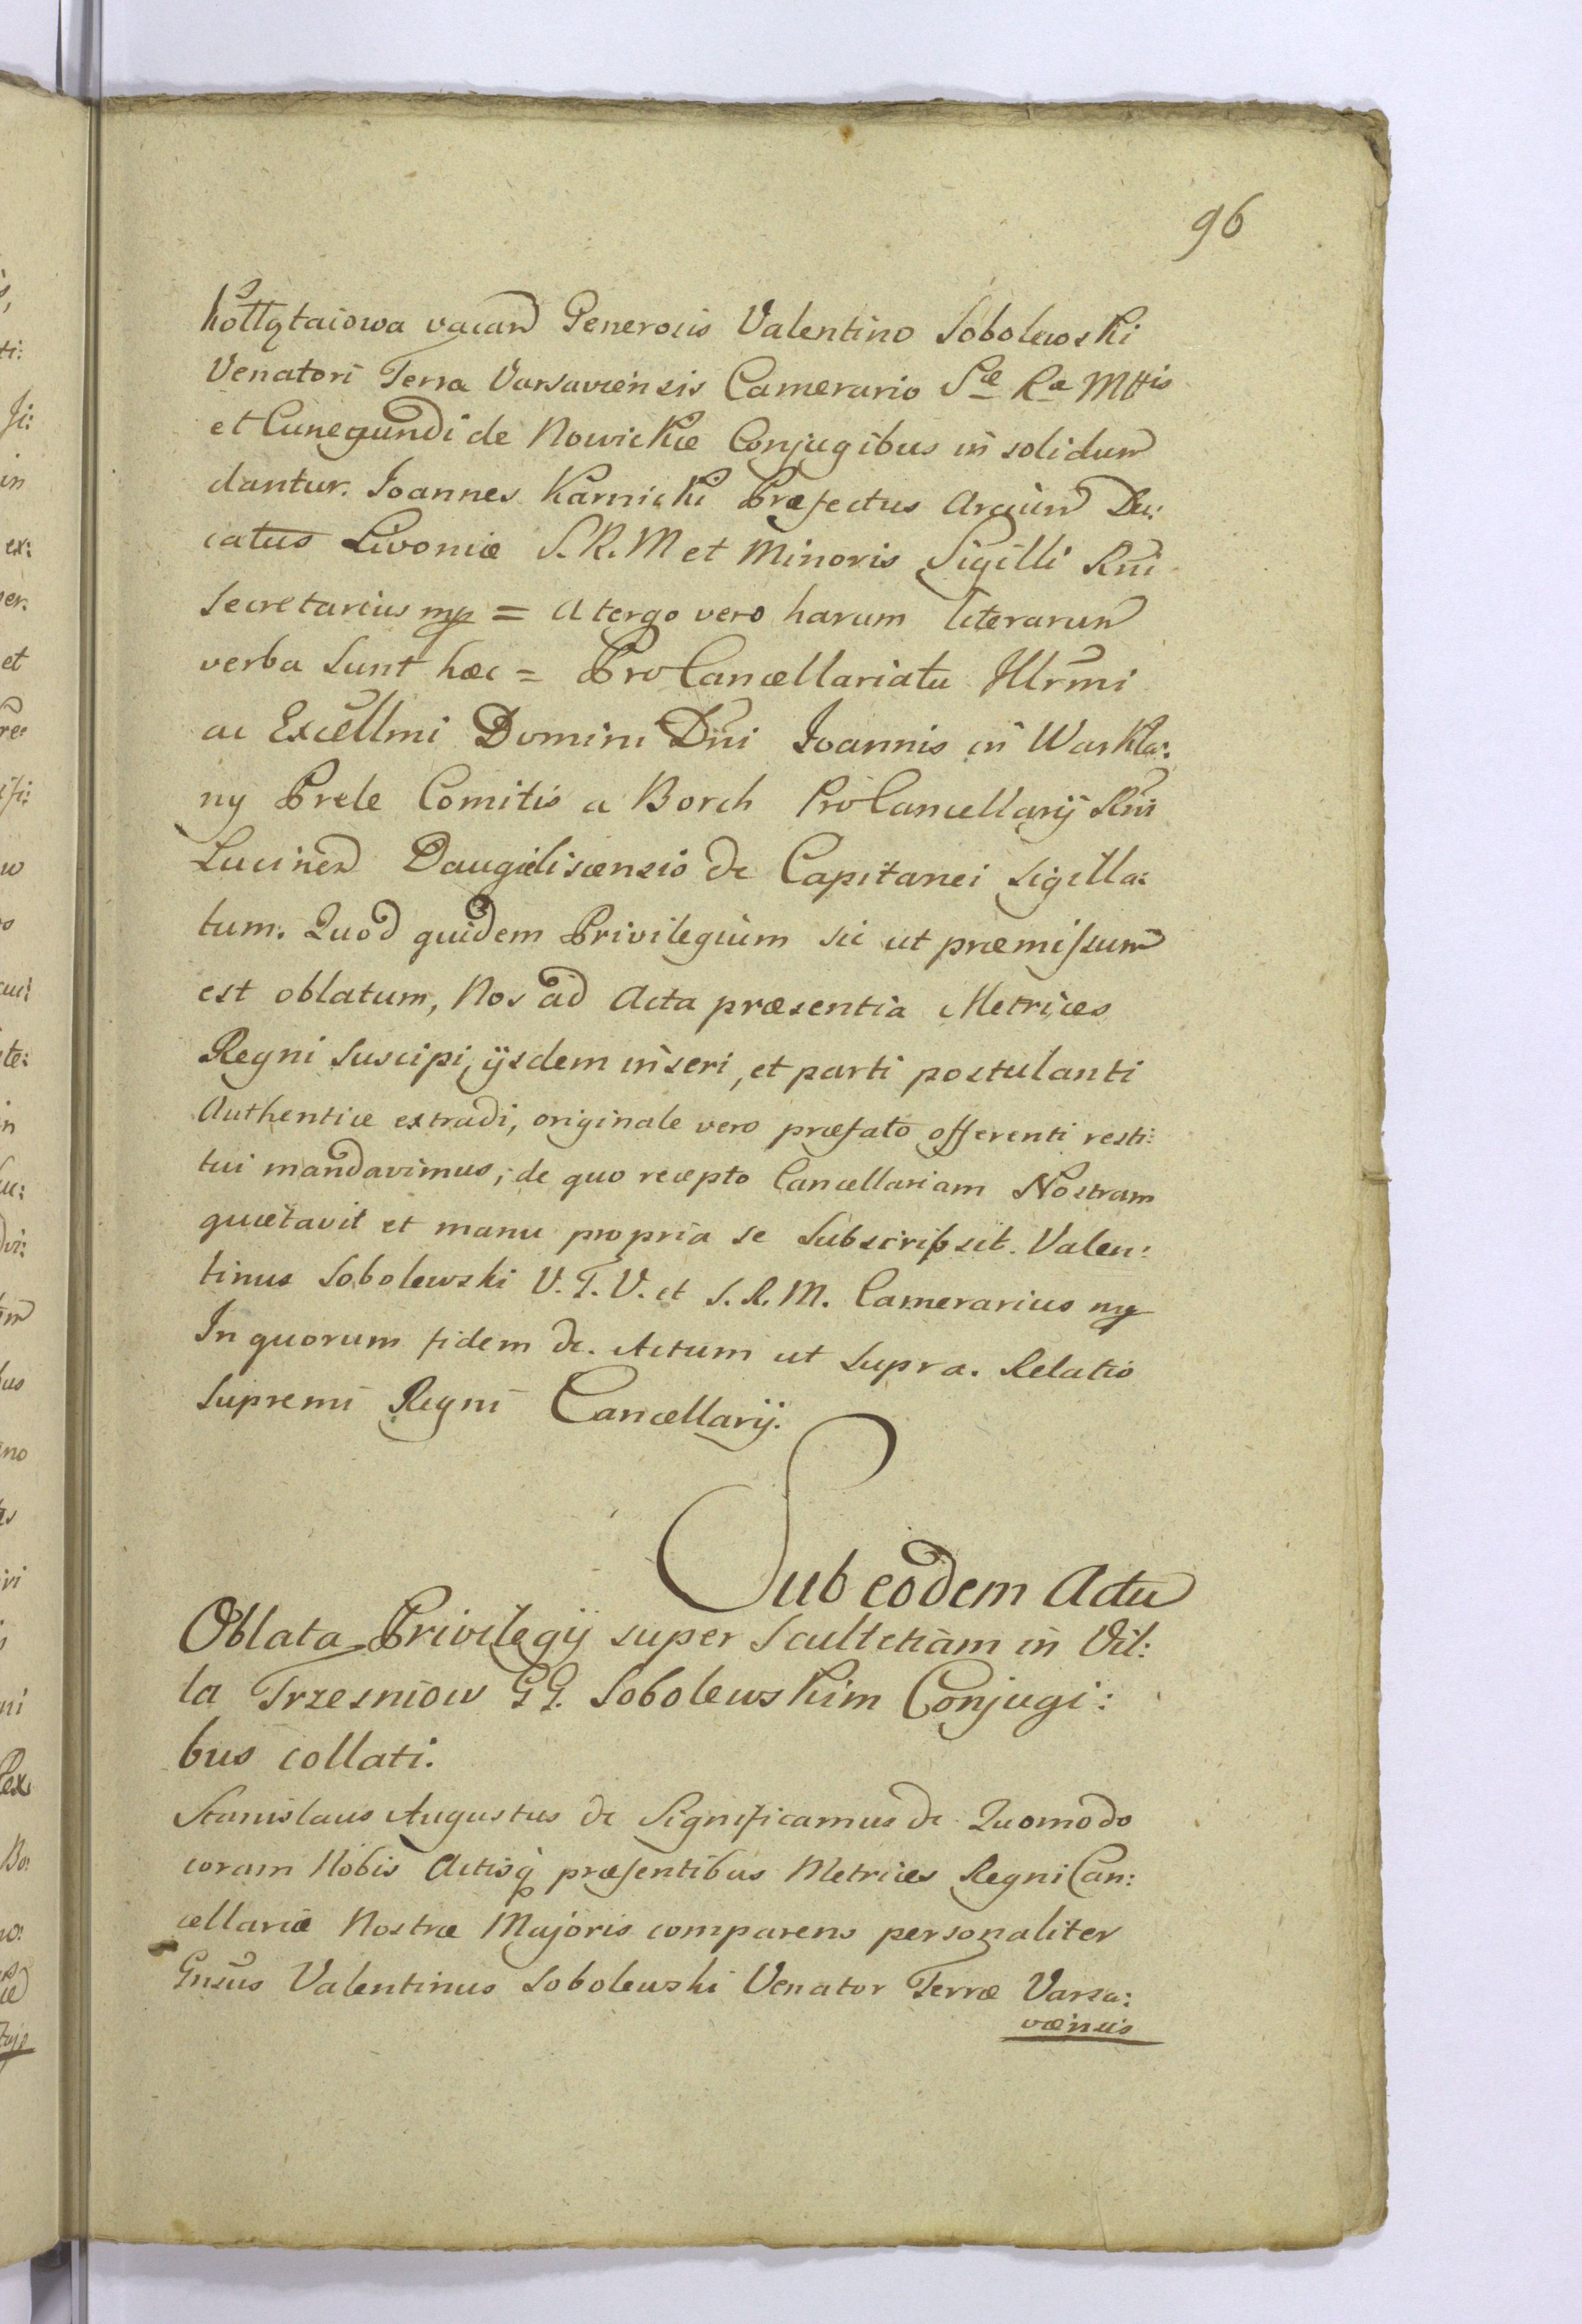 96
Kołłątaiowa vacan Generosis Valentino Sobolewski
Venatori Terra Varsaviensis Camerario Sæ Ræ Mttis
et Cunegundi de Nowickie Conjugibus in solidum
dantur. Joannes Karnicki Præfectus Arcium Du:
catus Livoniæ S. R. M et Minoris Sigilli Rni
Secretarius mp = A tergo vero harum literarum
verba sunt hæc = Pro Cancellariatu Illrmi
ac Excellmi Domini Dni Joannis in Warkla:
ny Prele Comitis a Borch ProCancellarij Rni
Lucinen Daugieliscensis &c Capitanei sigilla:
tum. Quod quidem Privilegium sic ut præmissum
est oblatum, Nos ad Acta præsentia Metrices
Regni suscipi, ijsdem inseri, et parti postulanti
Authentice extradi, originale vero præfato offerenti resti:
tui mandavimus; de quo recepto Cancellariam Nostram
quietavit et manu propria se subscripsit. Valen:
tinus Sobolewski V. T. V. et S. R. M. Camerarius mp
In quorum fidem &c. Actum ut supra. Relatio
Supremi Regni Cancellarij.
Sub eodem Actu
Oblata Privilegij super Scultetiam in Vil:
la Trzesniow GG. Sobolewskim Conjugi:
bus collati.
Stanislaus Augustus &c Significamus &c Quomodo
coram Nobis Actisq præsentibus Metrices Regni Can:
cellariæ Nostræ Majoris comparens personaliter
Gnsus Valentinus Sobolewski Venator Terræ Varsa:
viensis